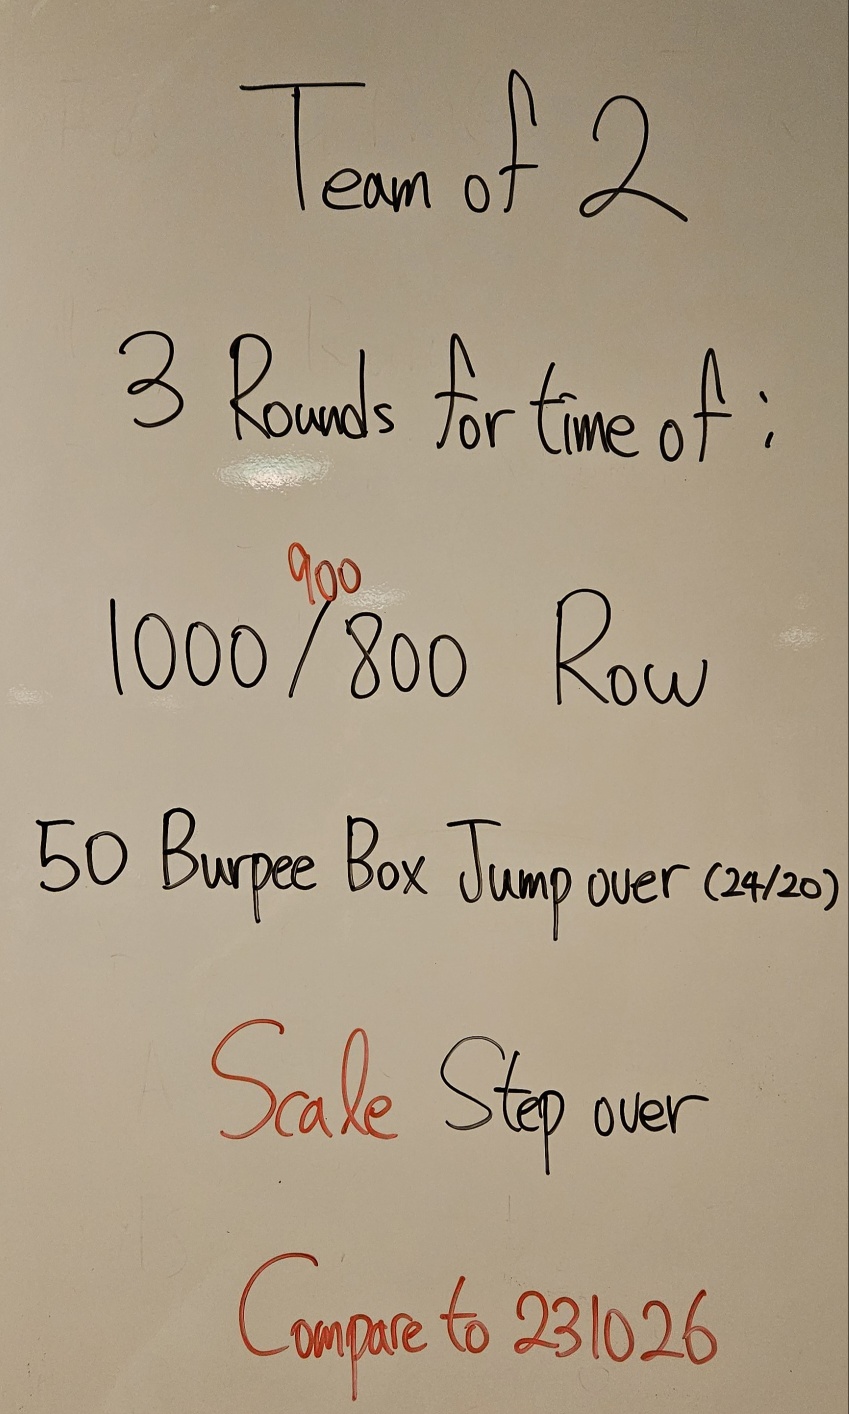 Team of 2
3 Rounds for time of :
900
1000/800 Row
50 Burpee Box Jump over (24/20)
Scale Step over
Compare to 231026